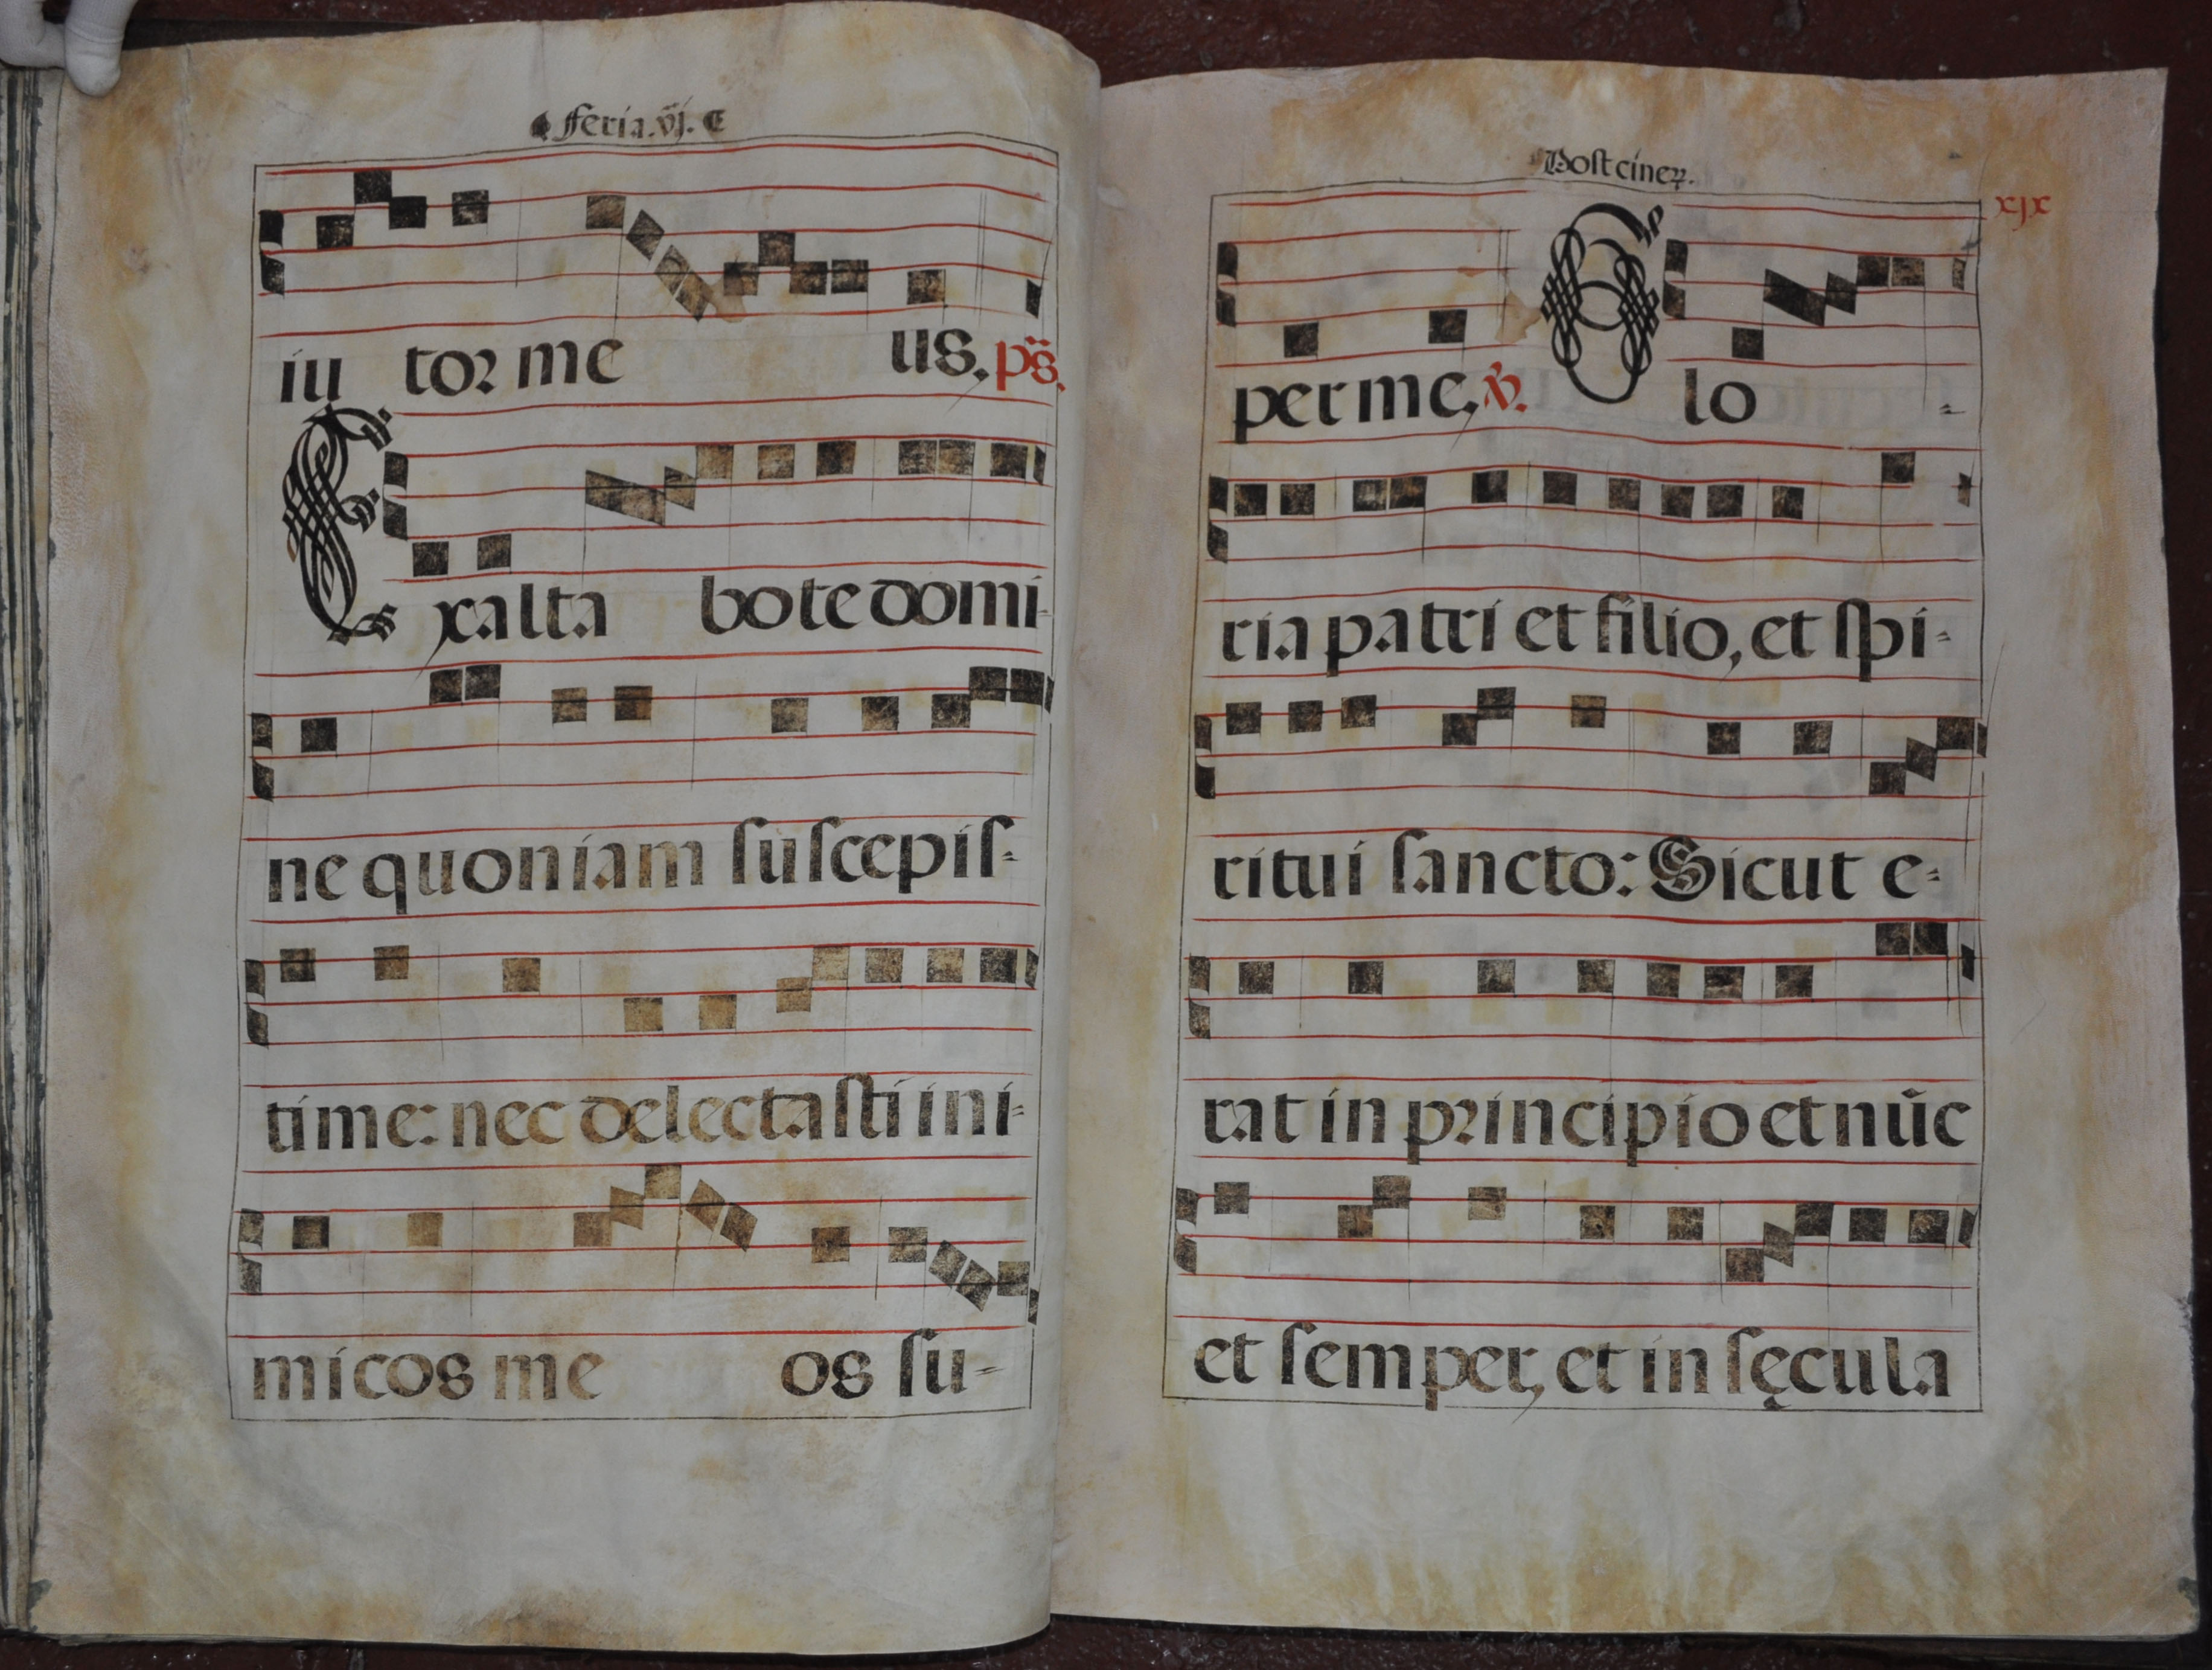 feria.vj.
iu tor me us. ps.
Exalta bo te domi-
ne quoniam suscepis-
ti me: nec delectasti ini-
micos me os su-
Post cineꝝ.
xjx
per me. ℣. Glo -
ria patri et filio, et spi-
ritui sancto: Sicut e-
rat in principio et nūc
et semper, et in sęcula